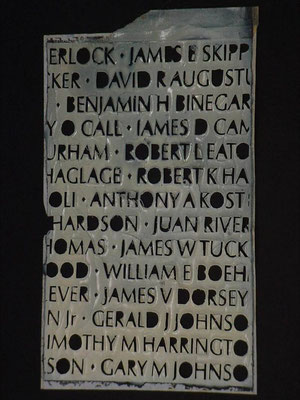 ERLOCK · JAMES E SKIPP
CKER · DAVID R AUGUSTU
· BENJAMIN H BINEGAR
Y O CALL · JAMES D CAM
URHAM · ROBERT L EATO
HAGLAGE · ROBERT K HA
OLI · ANTHONY A KOST
HARDSON · JUAN RIVER
HOMAS · JAMES W TUCK
OOD · WILLIAM E BOEH
EVER · JAMES V DORSEY
N Jr · GERALD J JOHNSO
IMOTHY M HARRINGTO
SON · GARY M JOHNSO